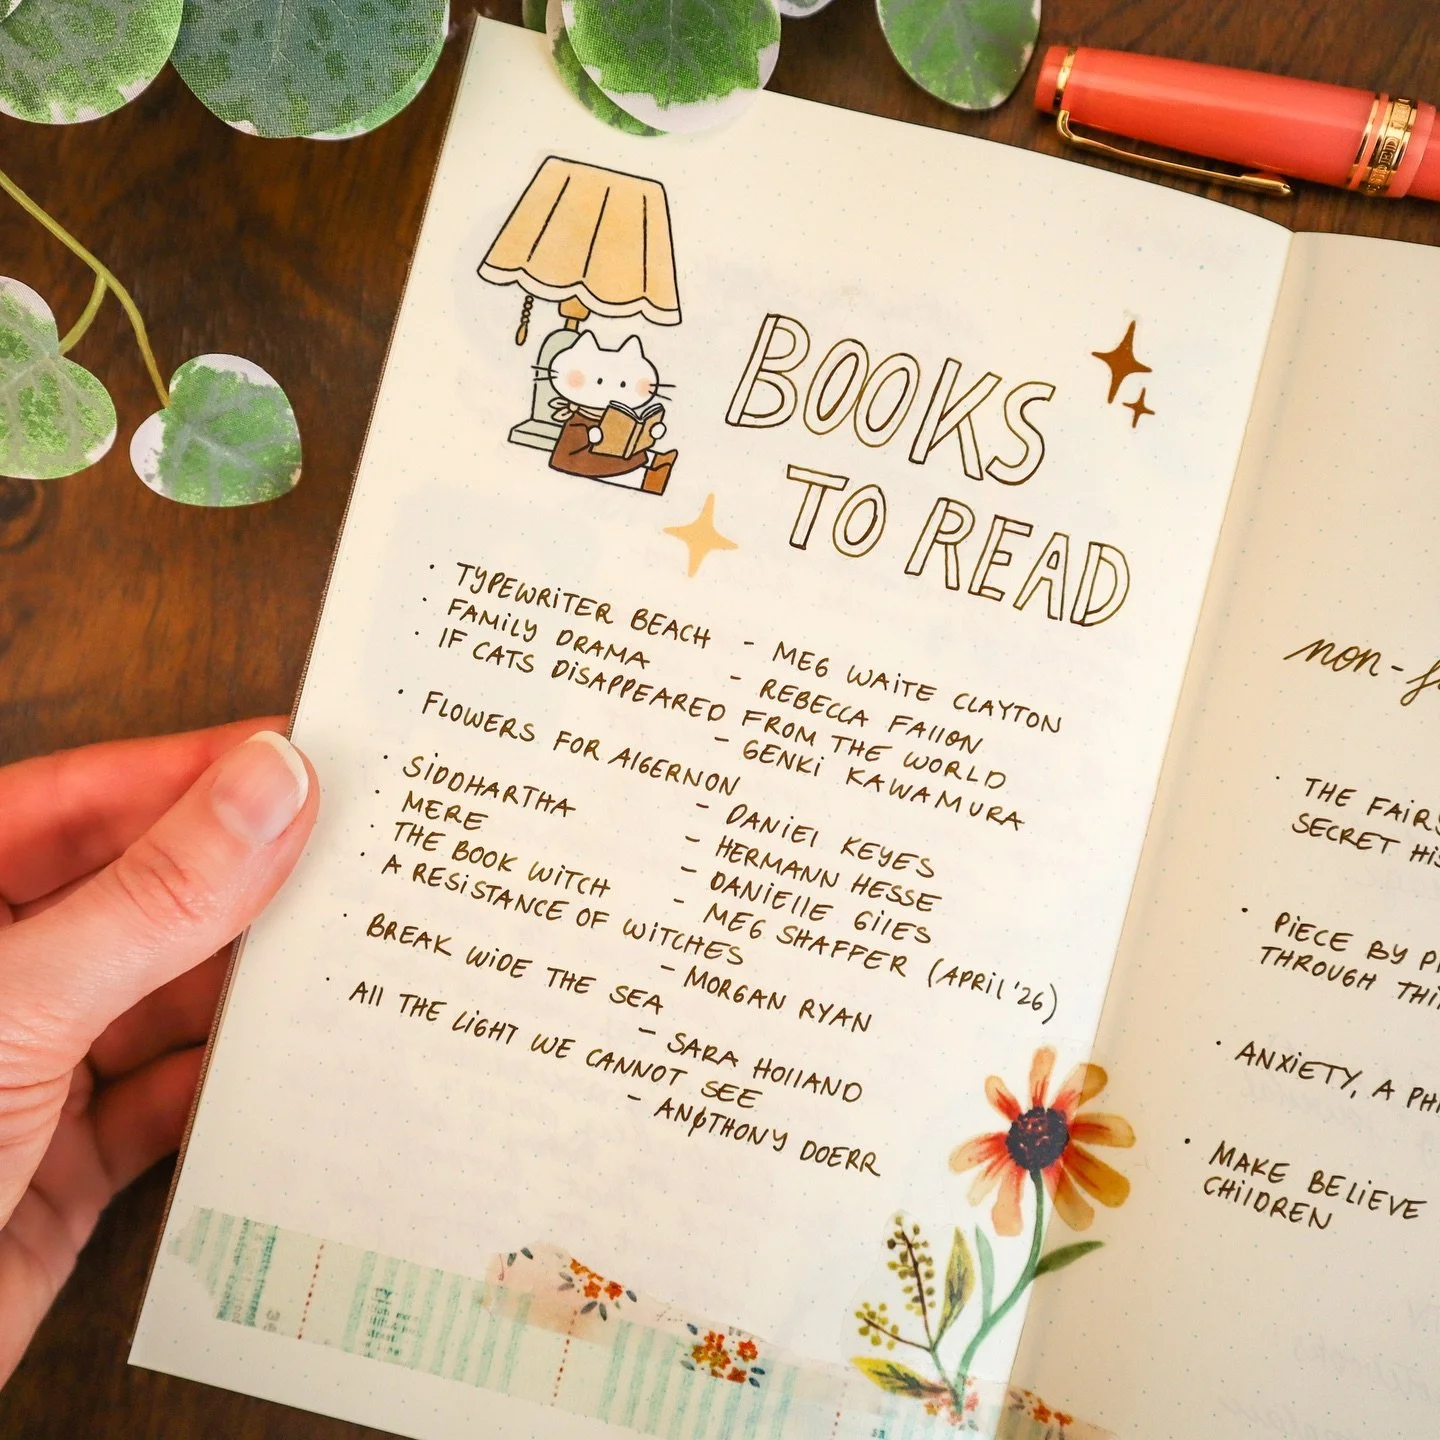 BOOKS
TO READ
· TYPEWRITER BEACH - MEG WAITE CLAYTON
· FAMILY DRAMA - REBECCA FALLON
· IF CATS DISAPPEARED FROM THE WORLD
- GENKI KAWAMURA
· FLOWERS FOR ALGERNON
- DANIEL KEYES
· SIDDHARTHA - HERMANN HESSE
· MERE - DANIELLE GILES
· THE BOOK WITCH - MEG SHAFFER (APRIL '26)
· A RESISTANCE OF WITCHES
- MORGAN RYAN
· BREAK WIDE THE SEA
- SARA HOLLAND
· ALL THE LIGHT WE CANNOT SEE
- ANTHONY DOERR
non-f
· THE FAIR
SECRET HIS
· PIECE BY P
THROUGH THI
· ANXIETY, A PH
· MAKE BELIEVE
CHILDREN